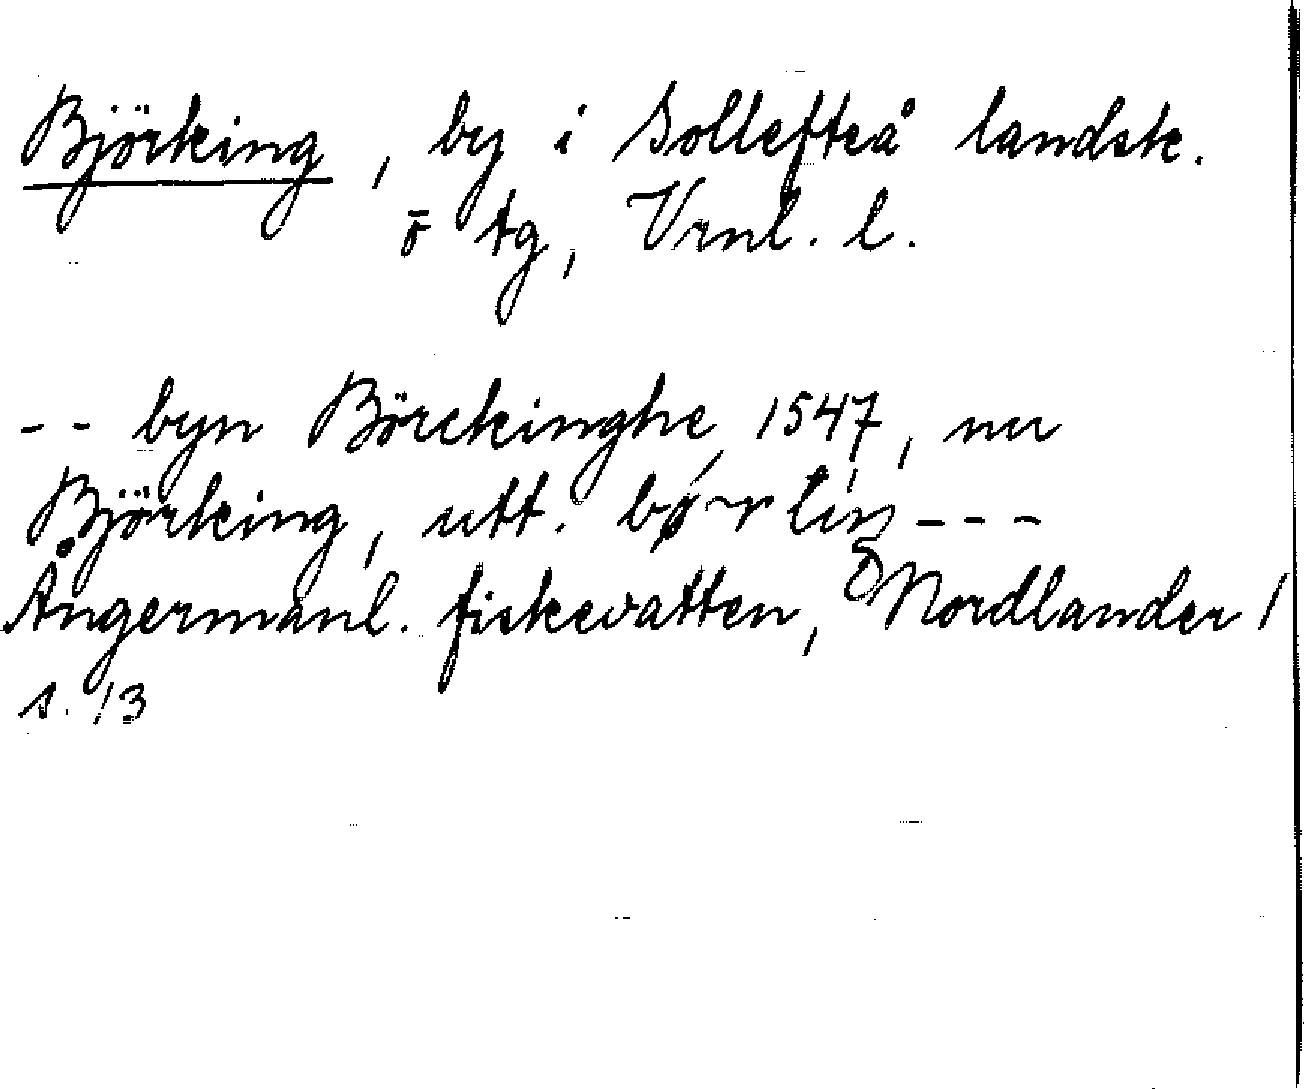 Björking, by i Sollefteå landsk.
ö tg, Vrnl. l.
-- byn Börckinghe 1547, nu
Björking, utt. ---
Ångermanl. fiskevatten, Nordlander /
s. 13